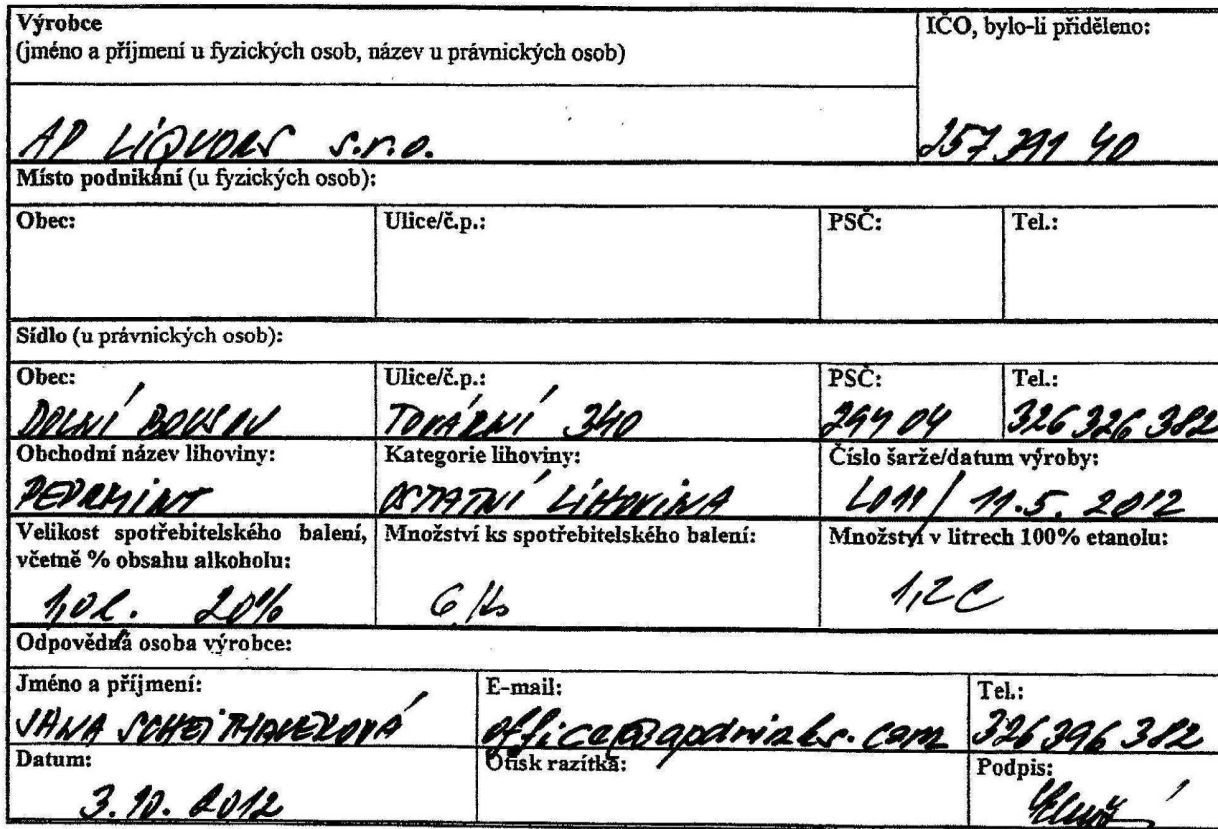 Výrobce
(jméno a příjmení u fyzických osob, název u právnických osob)
IČO, bylo-li přiděleno:
AP LIQUORS s.r.o.
257 391 40
Místo podnikání (u fyzických osob):
Obec: Ulice/č.p.: PSČ: Tel.:
Sídlo (u právnických osob):
Obec: Ulice/č.p.: PSČ: Tel.:
DOLNÍ BOUSOV TOVÁRNÍ 340 294 04 326 326 382
Obchodní název lihoviny: Kategorie lihoviny: Číslo šarže/datum výroby:
PEPRMINT OSTATNÍ LIHOVINA L011 / 11.5. 2012
Velikost spotřebitelského balení, Množství ks spotřebitelského balení: Množství v litrech 100% etanolu:
včetně % obsahu alkoholu:
1,0 l. 20% 6 ks 1,2 l
Odpovědná osoba výrobce:
Jméno a příjmení: E-mail: Tel.:
JANA SCHEITHAUEROVÁ office@apdrinks.com 326 396 382
Datum: Otisk razítka: Podpis:
3. 10. 2012